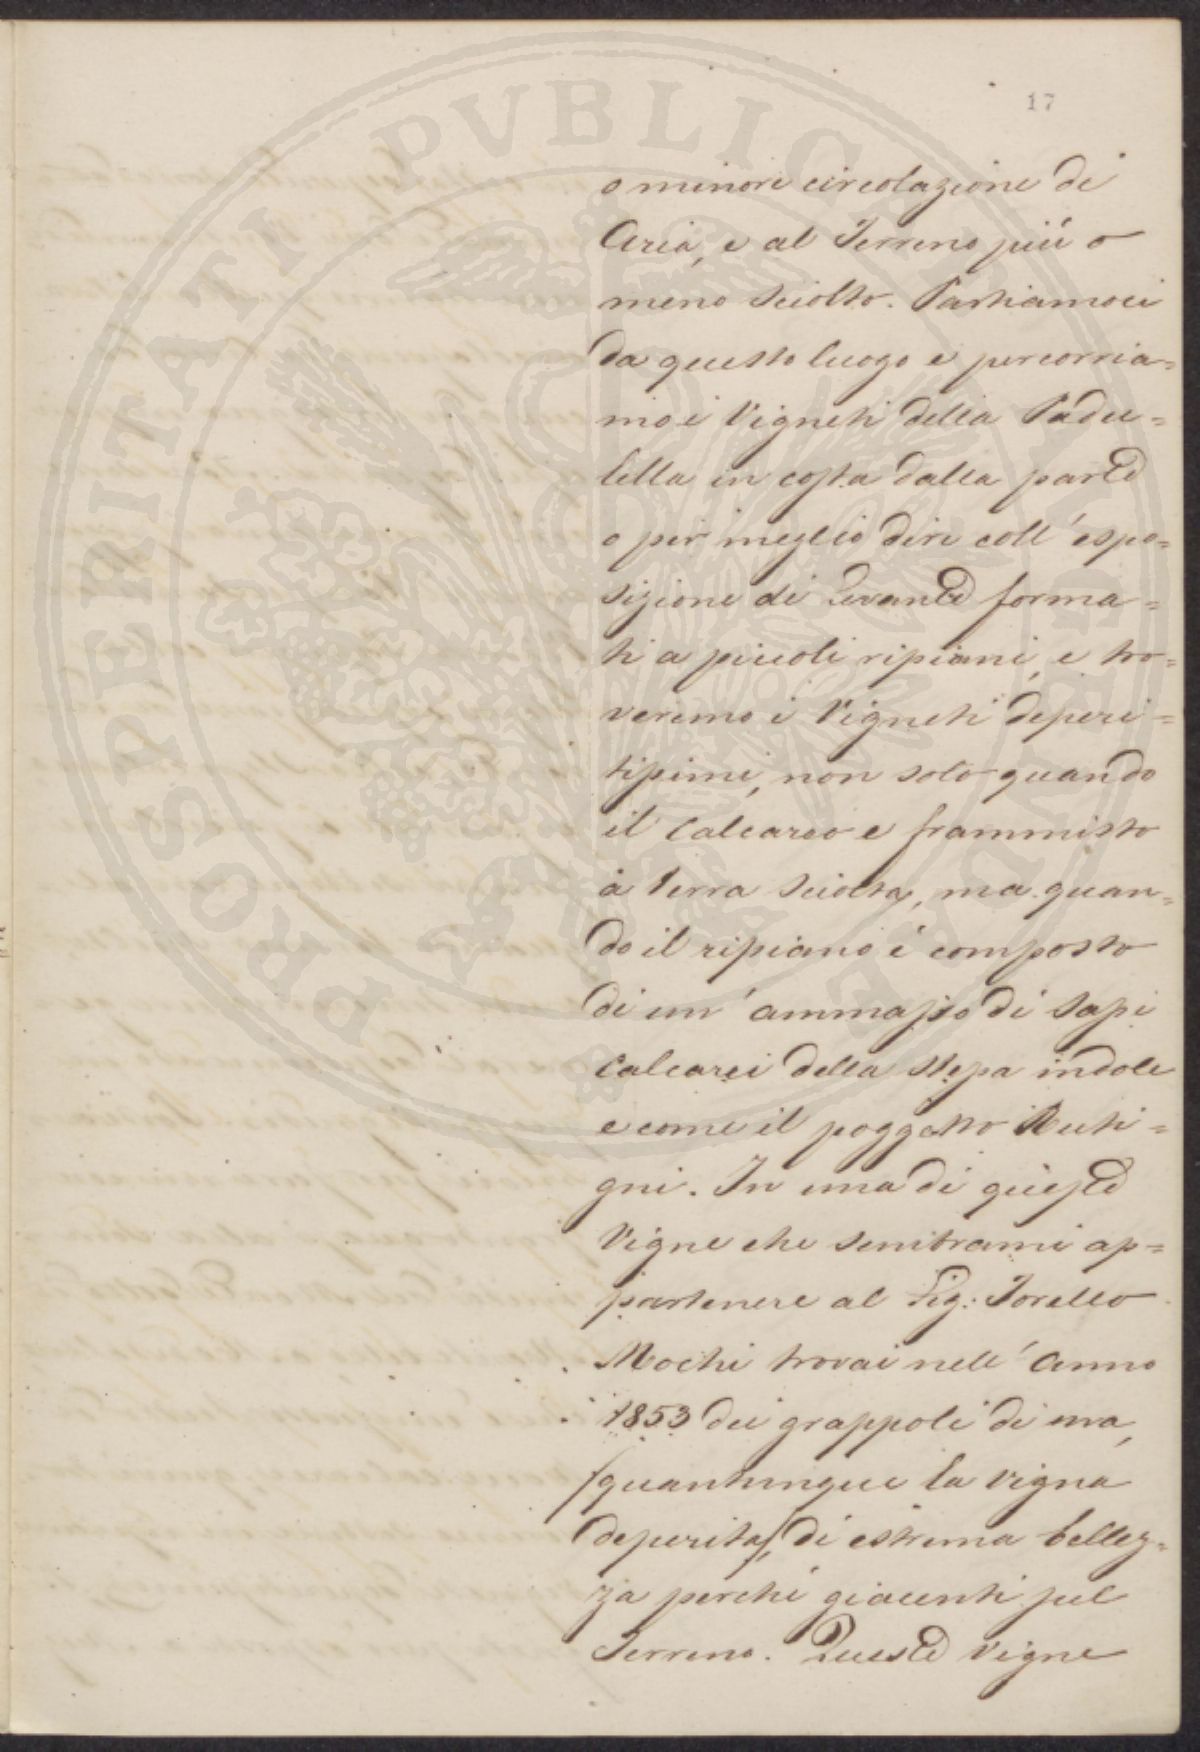 17
o minore circolazione di
Aria, e al Terreno più o
meno sciolto. Partiamoci
da questo luogo e percorria=
mo i Vigneti della Padu=
lella in costa dalla parte
o per meglio dire coll' espo=
sizione di Levante forma=
ti a piccoli ripiani, e tro=
veremo i Vigneti deperi=
tissimi, non solo quando
il Calcareo e frammisto
a terra sciolta, ma quan=
do il ripiano é composto
di un' ammasso di Sassi
Calcarei della stessa indole
e come il poggetto Ruti=
gni. In una di queste
Vigne che sembrami ap=
partenere al Sig: Torello
Mochi trovai nell' Anno
1853 dei grappoli di uva,
(quantunque la vigna
deperita), di estrema bellez=
za perché giacenti sul
Terreno. Queste Vigne
PROSPERITATI PVBLICAE AVGENDAE